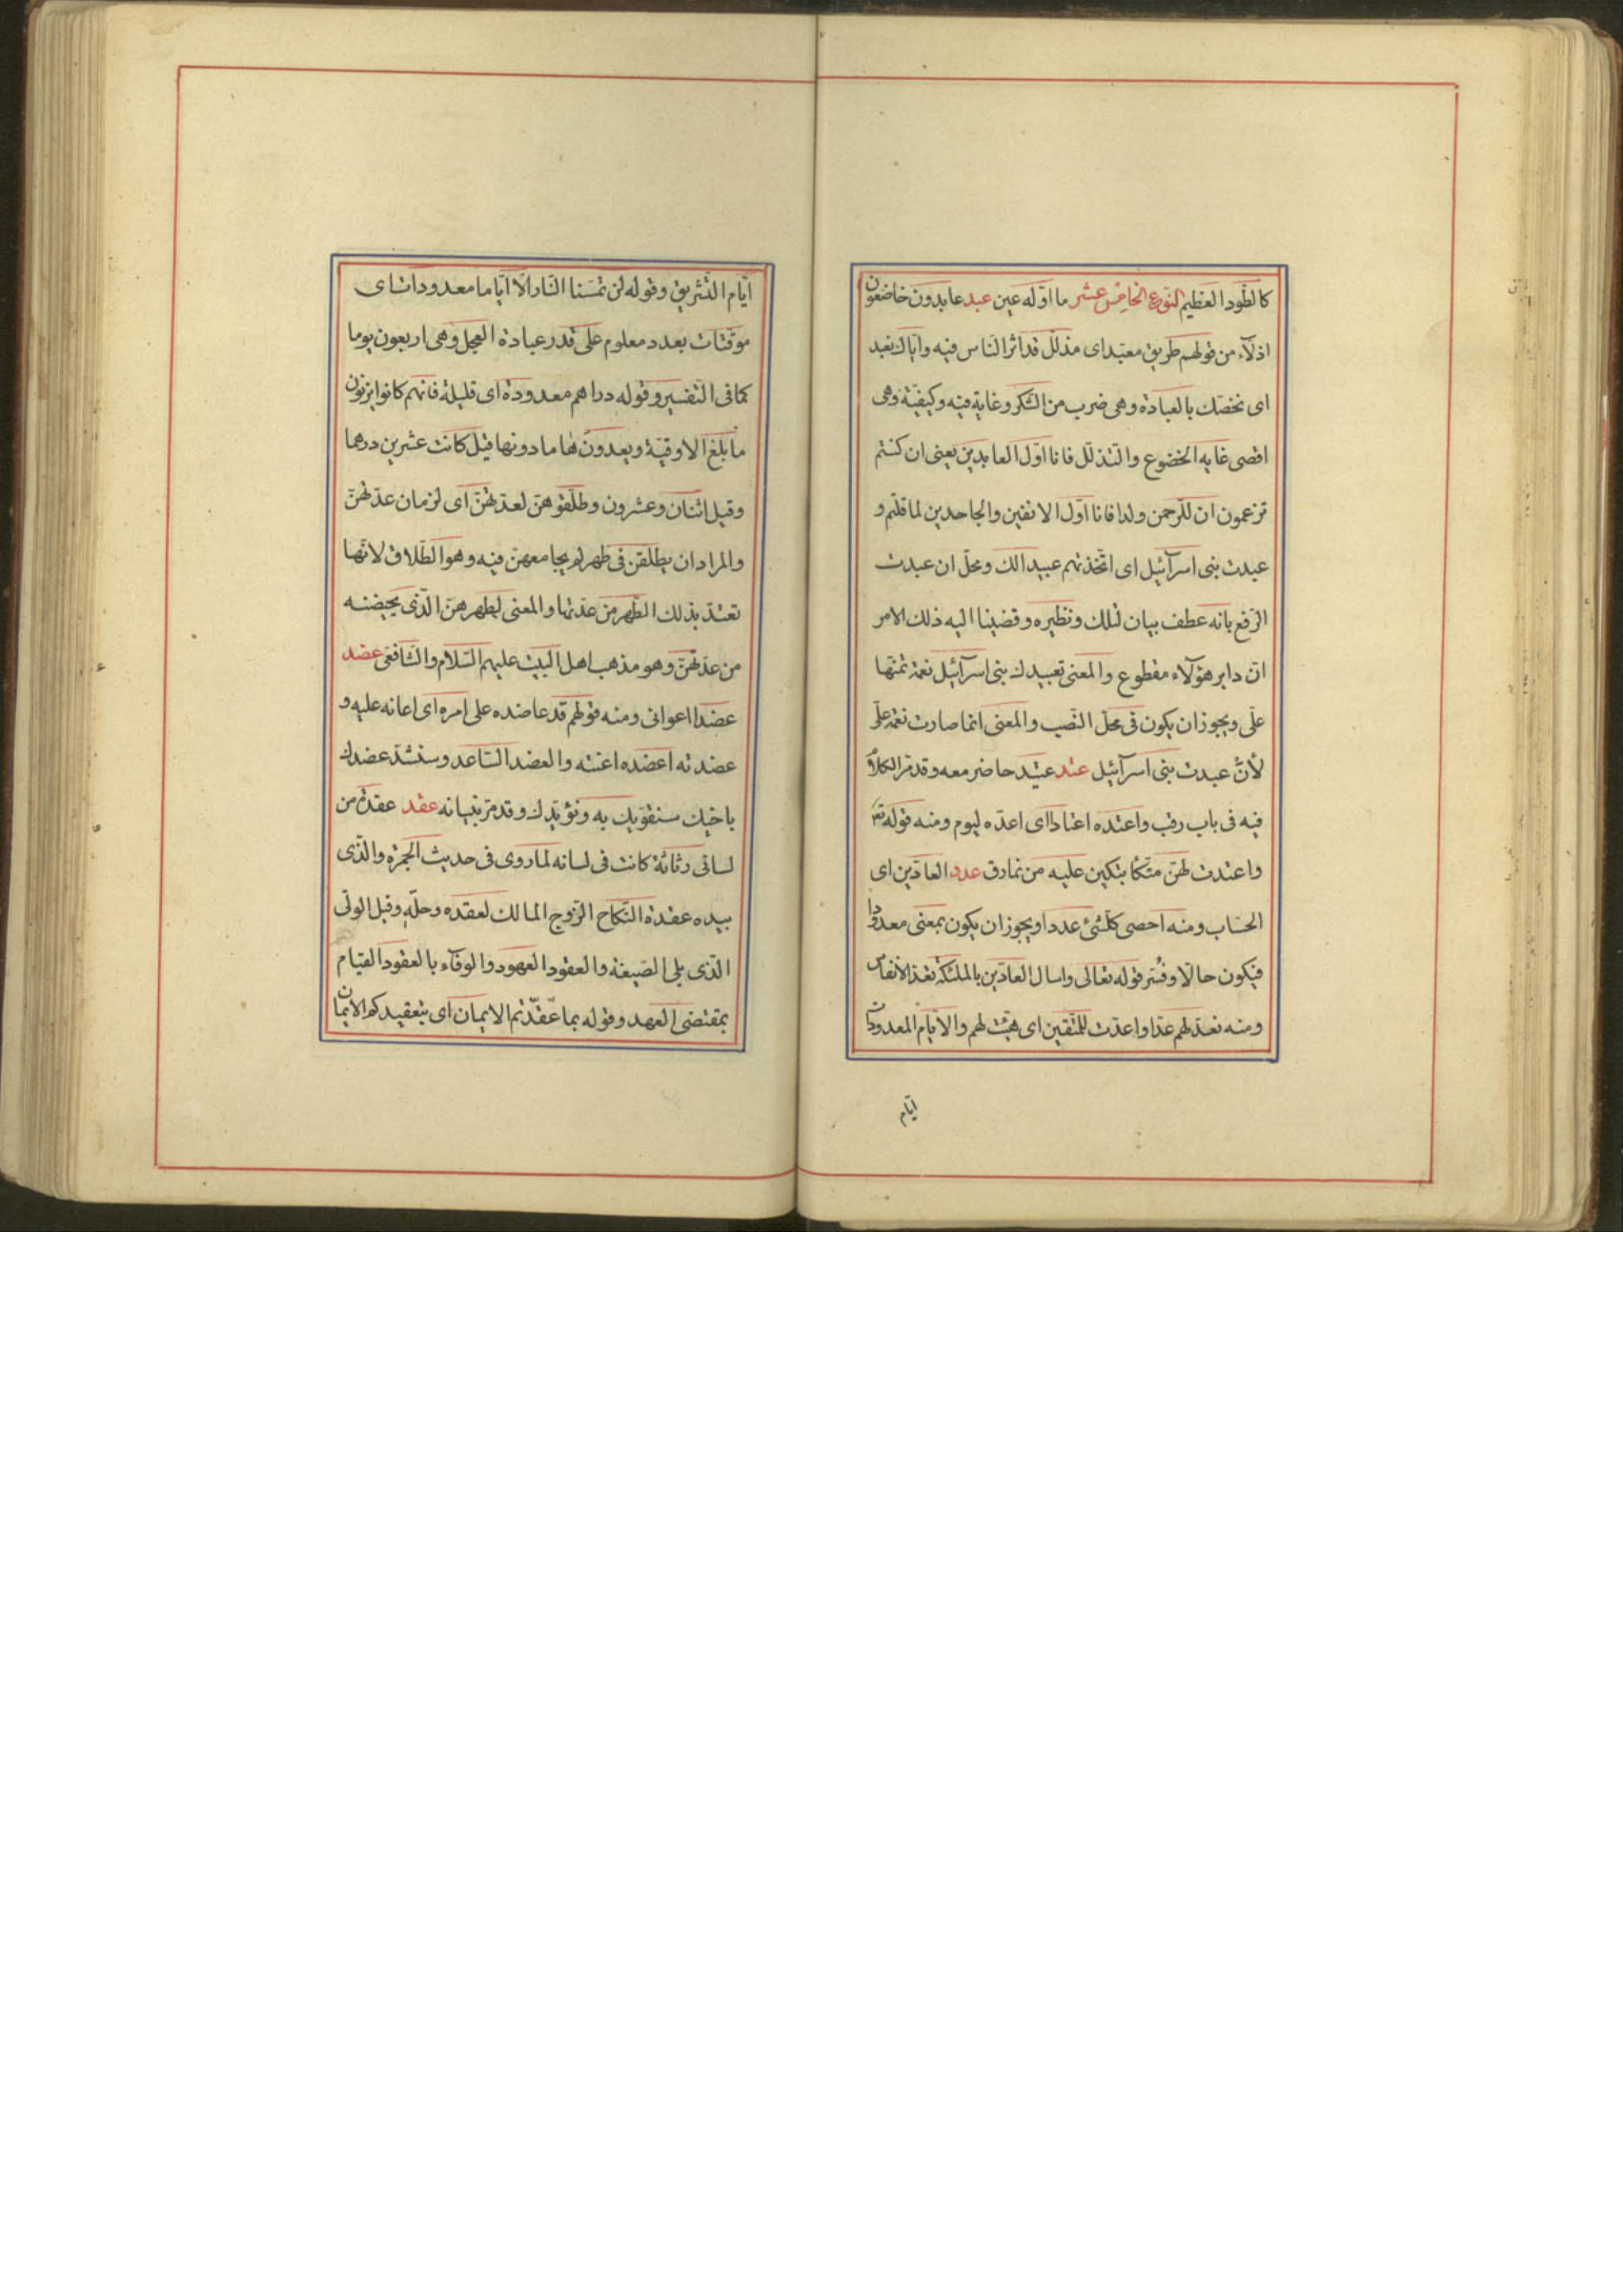 كالطود العظيم النوع الخامس عشر ما اوّله عين عبد عابدون خاضعون
اذلآء من قولهم طريق معبّد اى مذلّل قد اثر الناس فيه وايّاك نعبد
اى نخصّك بالعبادة وهى ضرب من الشكر وغاية فيه وكيفيّة وهى
اقصى غاية الخضوع والتذلّل فانا اوّل العابدين يعنى ان كنتم
تزعمون ان للرّحمن ولدا فانا اوّل الانفين والجاحدين لما قلتم و
عبدت بنى اسرآئيل اى اتّخذتهم عبيدا لك ومحلّ ان عبدت
الرّفع بانه عطف بيان لتلك ونظيره وقضينا اليه ذلك الامر
انّ دابر هؤلآء مقطوع والمعنى تعبيدك بنى اسرآئيل نعمة تمنّها
علّى ويجوز ان يكون فى محلّ النّصب والمعنى انما صارت نعمة علّى
لأنّ عبدت بنى اسرآئيل عتد عتيد حاضر معه وقد مرّ الكلام
فيه فى باب رقب واعتده اعتادا اى اعدّه ليوم ومنه قوله تع
واعتدت لهنّ متكأ يتكين عليه من نمارق عدد العادّين اى
الحسّاب ومنه احصى كلّشئ عددا ويجوز ان يكون بمعنى معدودا
فيكون حالا وفسّر قوله تعالى واسال العادّين بالملئكة تعدّ الأنفاس
ومنه نعدّ لهم عدّا واعدّت للمتّقين اى هيّئت لهم والأيّام المعدودات
ايّام
ايّام التّشريق وقوله لن تمسّنا النّار الّا ايّاما معدودات اى
موقتات بعدد معلوم على قدر عبادة العجل وهى اربعون يوما
كما فى التّفسير وقوله دراهم معدودة اى قليلة فانهم كانوا يزنون
ما بلغ الاوقيّة ويعدون لها ما دونها قيل كانت عشرين درهما
وقيل اثنان وعشرون وطلّقوهنّ لعدّتهنّ اى لزمان عدّتهنّ
والمراد ان يطلّقن فى طهر لم يجامعهنّ فيه وهو الطّلاق لانّها
تعتدّ بذلك الطّهر من عدّتها والمعنى لطهرهنّ الّذى يحيضنه
من عدّتهنّ وهو مذهب اهل البيت عليهم السّلام والشّافعى عضد
عضدا اعوانى ومنه قولهم قد عاضده على امره اى اعانه عليه و
عضدته اعضده اعنته والعضد السّاعد وسنشدّ عضدك
باخيك سنقوّيك به ونؤيّدك وقد مرّ بنيانه عقد عقدة من
لسانى رثاثة كانت فى لسانه لما روى فى حديث الجمرة والّذى
بيده عقدة النّكاح الزّوج المالك لعقده وحلّه وقيل الولى
الّذى يلى الصّيغة والعقود العهود والوفآء بالعقود القيام
بمقتضى العهد وقوله بما عقّدتم الايمان اى بتعقيدكم الايمان